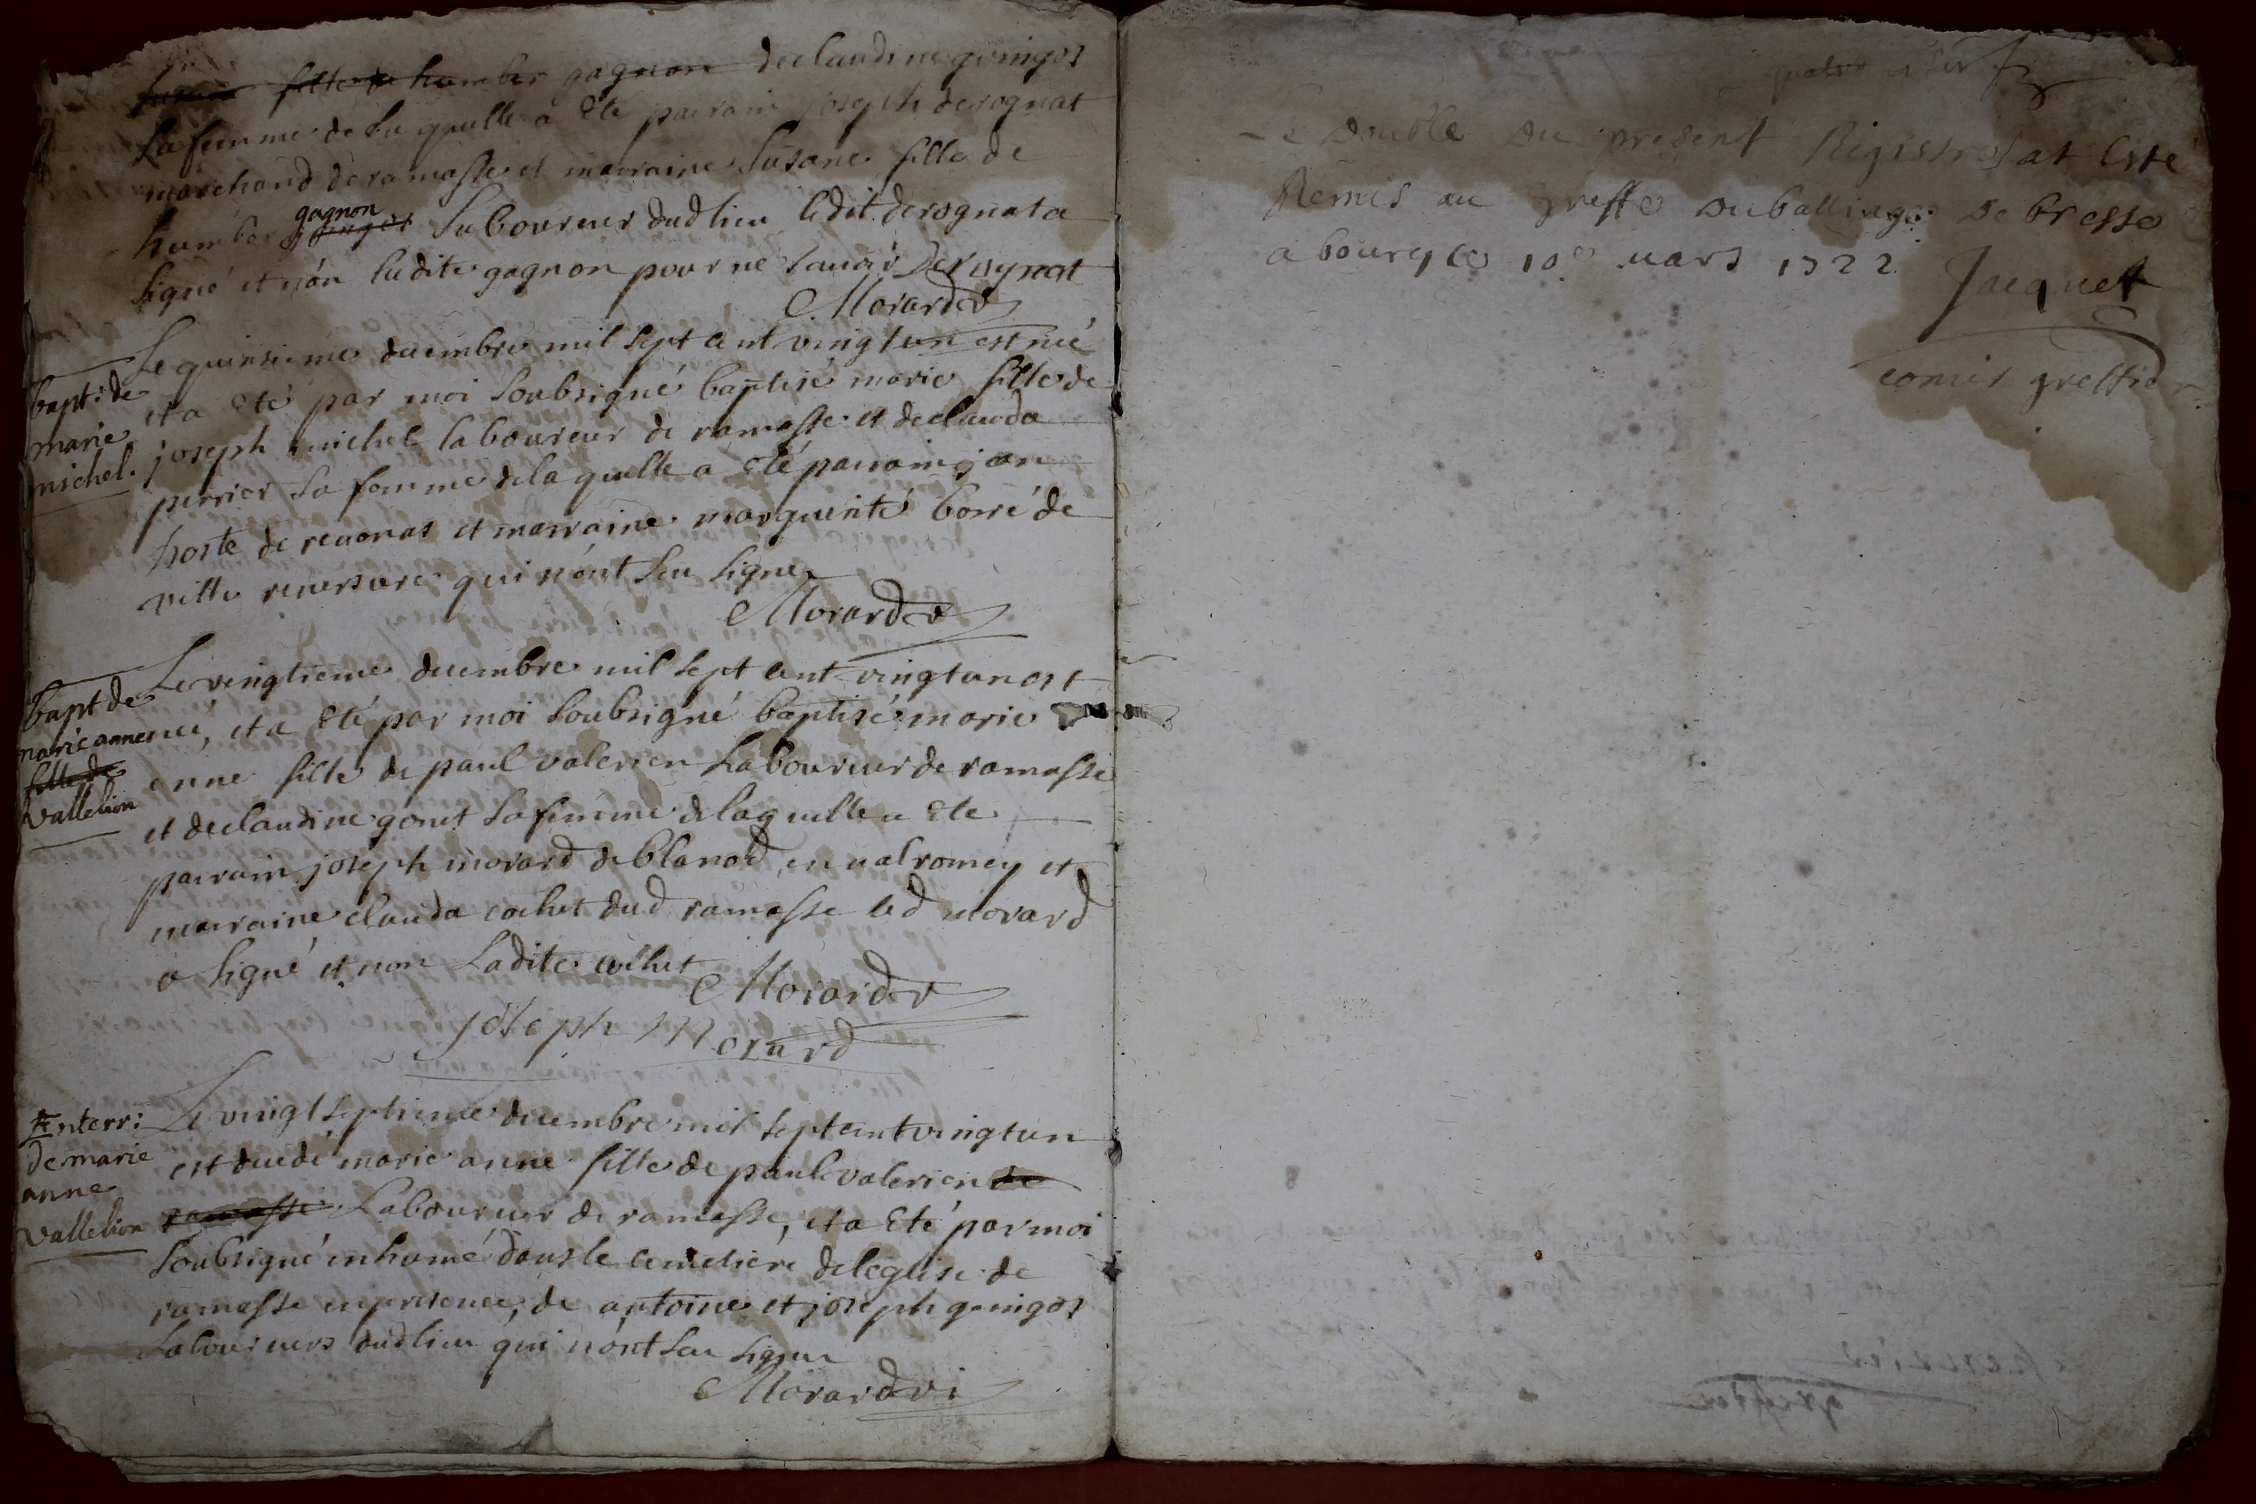 fille de humber gagnon de claudine guingos
sa femme de la quelle a eté parrain joseph derognat
marchand de ramasse et marraine susane fille de
humber gagnon laboureur dud lieu ledit derognat a
signé et nón ladite gagnon pour ne savoir Derognat
Morard v
bapt: de
marie
michel.
Le quinsieme decembre mil sept cent vingt un est née
et a eté par moi soubsigné baptisé marie fille de
joseph michel laboureur de ramasse et de clauda
perrier sa femme de la quelle a eté parrain jean
horte de reuonas et marraine marguerite borré de
ville reversure qui nónt seu signer
Morard v
bapt de
marie anne
fille de
vallelion
Le vengtieme decembre mil sept cent vingt un est
née, et a eté par moi soubsigné baptisé marie
anne fille de paul valerien laboureur de ramasse
et de claudine gonet sa femme de laquelle a ete
parrain joseph morard de blanad en valromey et
marraine clauda cochet dud ramasse led morard
a signé et non ladite cochet
Morard v
joseph Morard
Enterr:
de marie
anne
vallelion
Le vingt septieme decembre mil sept cent vingt un
est decedé marie anne fille de paul valerien de
ramasse laboureur de ramasse, et a eté par moi
soubsigné inhumé dans le cemetiere de léglise de
ramasse en presence, de antoine et joseph guingos
laboureurs dud lieu qui nónt seu signer
Morard vi
Le Double du present Registre at Esté
Remis au greffe du balliage de bresse
a bourg le 10e mars 1722
Jacquet
comis greffier